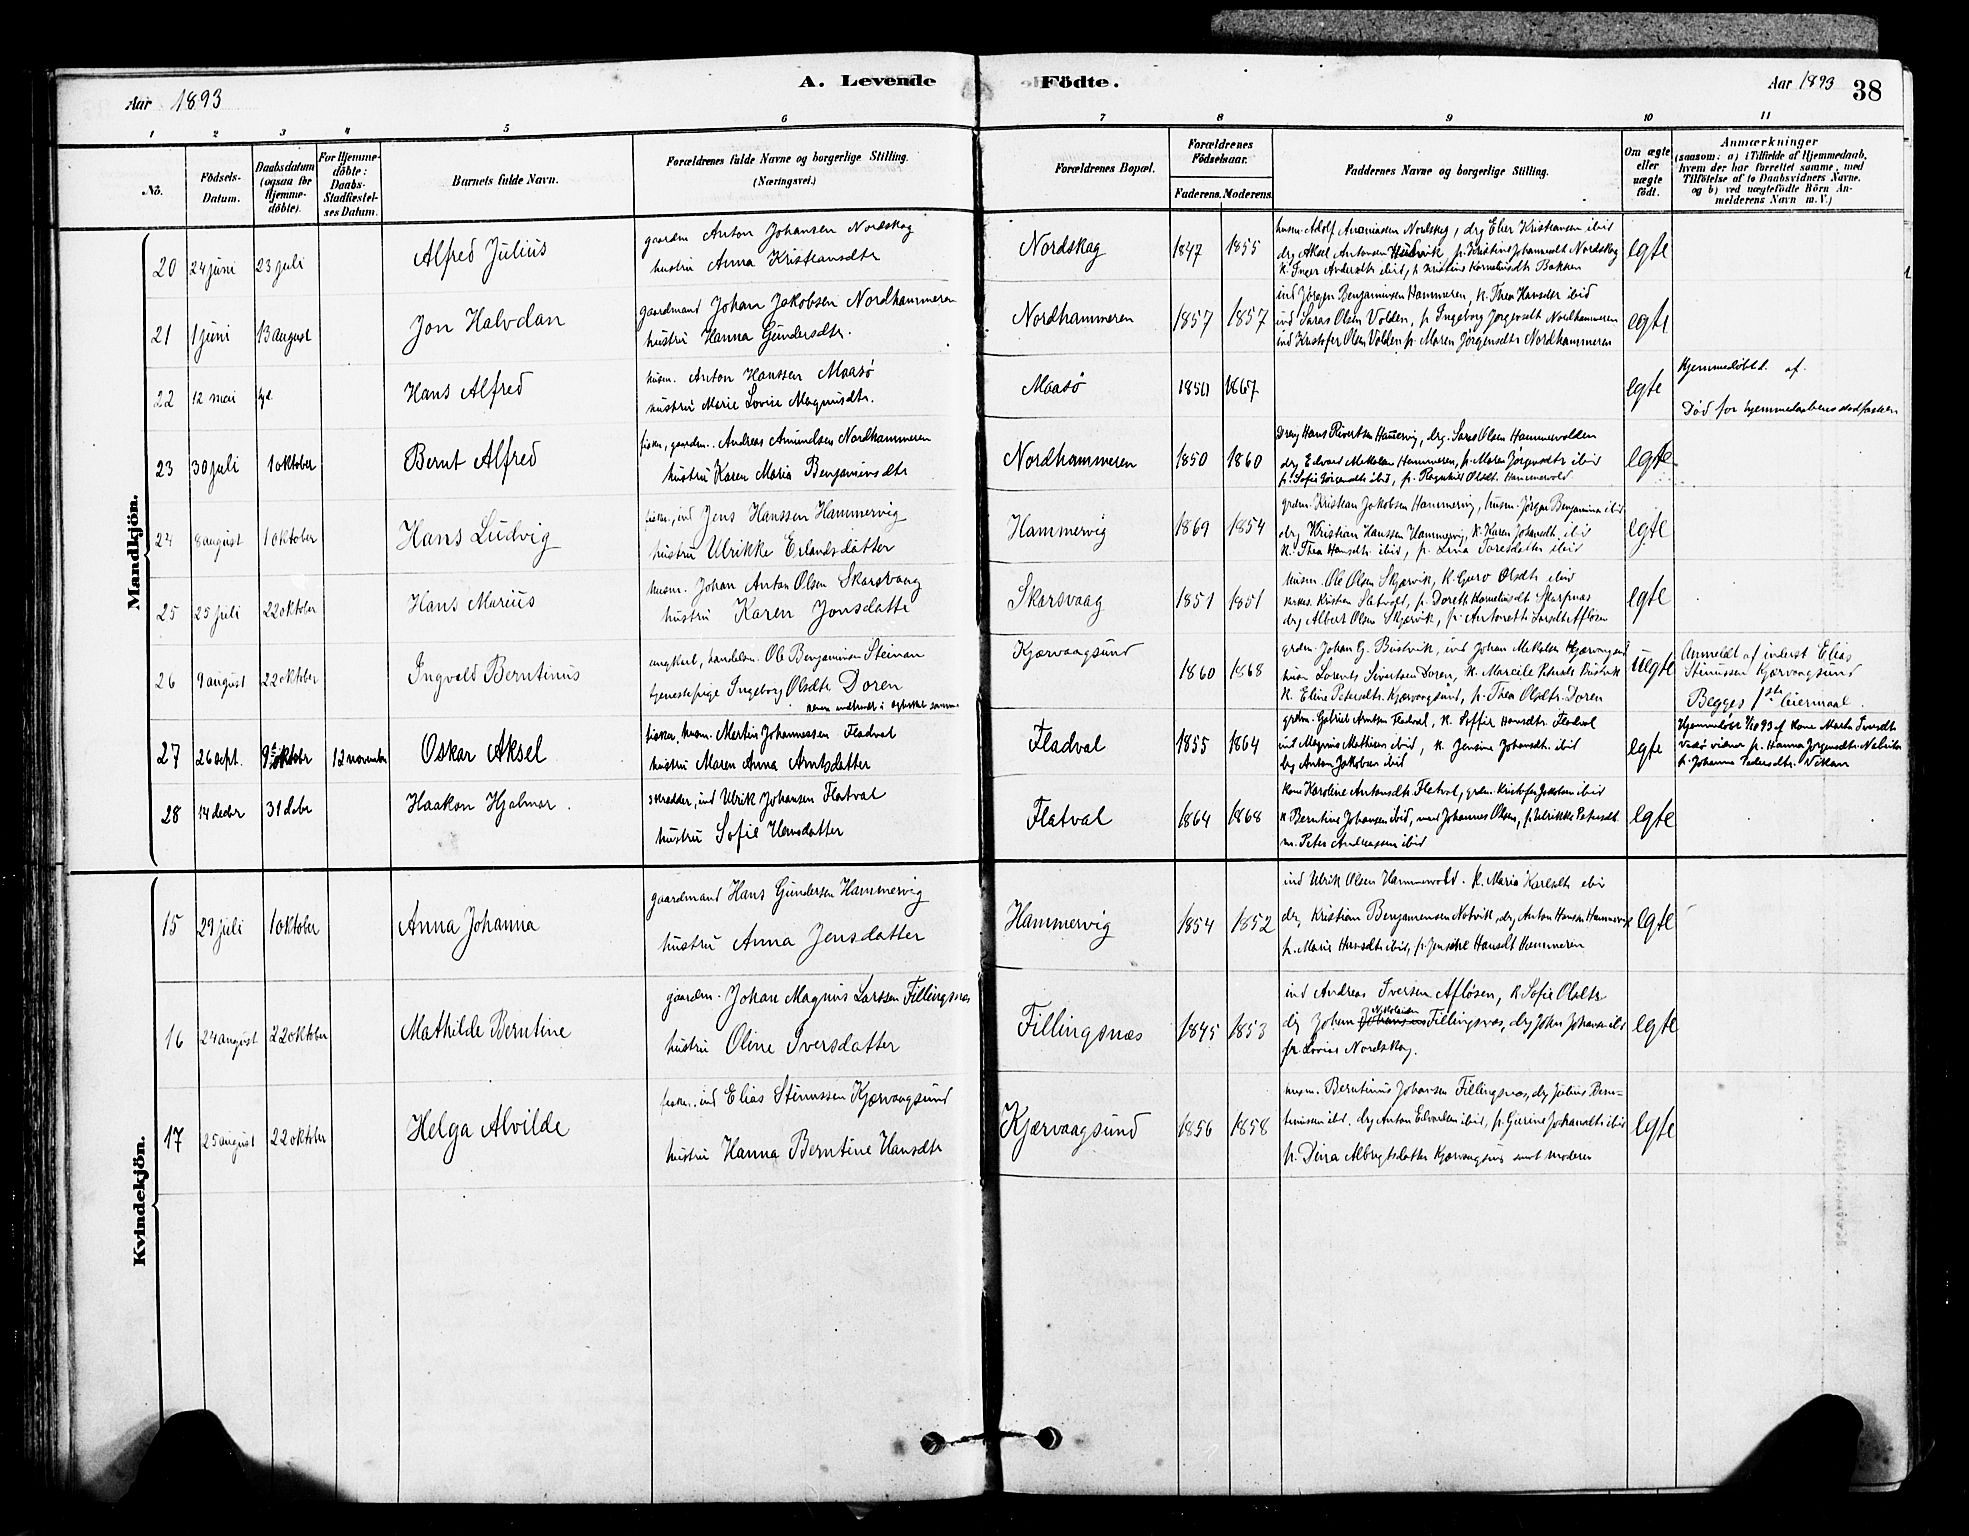 A. Levende Födte.
Aar 1893
Aar 1893 38
1 2 3 4 5 6 7 8 9 10 11
Nô.
Födsels-Datum.
Daabsdatum (ogsaa for Hjemme-döbte).
For Hjemme-döbte: Daabs-Stadfæstel-ses Datum.
Barnets fulde Navn.
Forældrenes fulde Navne og borgerlige Stilling. (Næringsvei.)
Forældrenes Bopæl.
Forældrenes Födselsaar.
Faderens. Moderens.
Faddernes Navne og borgerlige Stilling.
Om ægte eller uægte födt.
Anmærkninger
(saasom: a) i Tilfælde af Hjemmedaab,
hvem der har forrettet samme, med
Tilföielse af to Daabsvidners Navne,
og b) ved uægtefödte Börn An-
melderens Navn m. V.)
Mandkjön.
20 24 juni 23 juli Alfred Julius
gaardm Anton Johansen Nordskag
hustru Anna Kristiansdtr
Nordskag 1847 1855
husm Adolf Ananiassen Nordskag, drg Elier Kristiansen ibid
drg Aksel Antonsen, p. Kristine Johansdt Nordskag
k. Inger Andersdtr ibid, Kristine Kornelinsdtr Bakken
egte
21 1 juni 13 august Jon Halvdan
gaardmand Johan Jakobsen Nordhammeren
hustru Hanna Gundersdtr.
Nordhammeren 1857 1857
ind Jørgen Benjaminsen Hammeren, k. Thea Hansdtr ibid
ind Saras Olsen Volden, p. Ingeborg Jørgensdt Nordhammeren
ind Kristofer Olsen Volden p. Maren Jørgensdtr Nordhammeren
egte
22 12 mai Hans Alfred
husm. Anton Hanssen Maasø
hustru Marie Lovise Magnusdtr.
Maasø 1850 1867
egte
Hjemmedøbt af
Død før hjemmedaabens stadfæstelse
23 30 juli 1 oktober Bernt Alfred
fisker, gaardm. Andreas Amundsen Nordhammeren
hustru Karen Maria Benjaminsdtr
Nordhammeren 1850 1860
Dreng Hans Sivertsen Hammervig, drg. Saras Olsen Hammervolden
drg Edvard Mekalsen Hammeren, p. Maren Jørgensdtr ibid
p. Sofie Jørgensdtr ibid, p. Ragnhild Olsdt. Hammervold
egte
24 8 august 1 oktober Hans Ludvig
fisker, ind Jens Hanssen Hammervig
hustru Ulrikke Erlandsdatter
Hammervig 1869 1854
grdm. Kristian Jakobsen Hammervig, husm. Jørgen Benjamins ibid
drg Kristian Hanssen Hammervig, k. Karen Johansdt ibid
k. Thea Hansdtr ibid, p. Lina Toresdatter ibid
egte
25 25 juli 22 oktober Hans Marius
husm. Johan Anton Olsen Skarsvaag
hustru Karen Jonsdatter
Skarsvaag 1851 1851
husm. Ole Olsen Skjærvik, k. Guro Olsdtr ibid
Kristian Slatvold, p. Doreth Kornelinsdt Skarpnæs
drg Albert Olsen Skjærvik, p. Antonette Larsdt Afløsen
egte
26 9 august 22 oktober Ingvald Berntinus
ungkarl, handelsm. Ole Benjaminsen Steinan
tjenestepige Ingeborg Olsdtr Doren
Kjærvaagsund 1860 1868
grdm. Johan G. Bustvik, ind Johan Mekalsen Kjærvaagsund
husm Lorents Sivertsen Doren, k. Marcile Bustvik
k. Eline Petersdtr. Kjærvaagsund, p. Thea Olsdtr. Doren
uegte
Anmeldt af inderst Elias
Stinussen Kjærvaagsund
Begges 1ste leiermaal.
27 26 sept. 9 oktober 12 november Oskar Aksel
fisker, husm. Martin Johannessen Fladval
hustru Maren Anna Arntsdatter
Fladval 1855 1864
grdm. Gabriel Arntsen Fladval, k. Soffie Hansdtr. Fladval
ind Magnus Mathisen ibid, k. Jensine Johansdt. ibid
drg Anton Jakobsen ibid
egte
Hjemmedøbt 9/10 93 af kone Marta
p. Hanna Jørgensdtr.
p. Johanna Pedersdtr. Vikan
28 14 decbr 31 debr Haakon Hjalmar.
skrædder, ind Ulrik Johansen Flatval
hustru Sofie Hansdatter
Flatval 1864 1868
Kone Karoline Antonsdtr Flatval, grdm. Kristofer Jakobsen ibid
k Berntine Johansen ibid, Johannes Olsen, p. Ulrikke Petersdt.
m. Peter Andreassen ibid
egte
Kvindekjön.
15 29 juli 1 oktober Anna Johanna
gaardmand Hans Gundersen Hammervig
hustru Anna Jensdatter
Hammervig 1854 1852
ind Ulrik Olsen Hammervold. k. Maria Karlsdtr ibid
drg Kristian Benjaminsen Notvik, drg Anton Hansen Hammervik
p. Marie Hansdtr ibid, p. Hansdt Hammeren
egte
16 24 august 22 oktober Mathilde Berntine
gaardm. Johan Magnus Larssen Fillingsnæs
hustru Oline Iversdatter
Fillingsnæs 1845 1853
ind Andreas Iversen Afløsen, k Sofie Olsdtr
drg Johan Nikolaisen Fillingsnæs, drg John Johansen ibid
p. Lovise Nordskag.
egte
17 25 august 22 oktober Helga Alvilde
fisker. ind Elias Stinussen Kjærvaagsund
hustru Hanna Berntine Hansdtr
Kjærvaagsund 1856 1858
husm. Berntinus Johansen Fillingsnæs, drg Julius Bern-
tinussen ibid. drg Anton Edvardsen ibid, p. Gurine Johansdtr ibid
p. Dina Albregtsdatter Kjærvaagsund samt moderen
egte